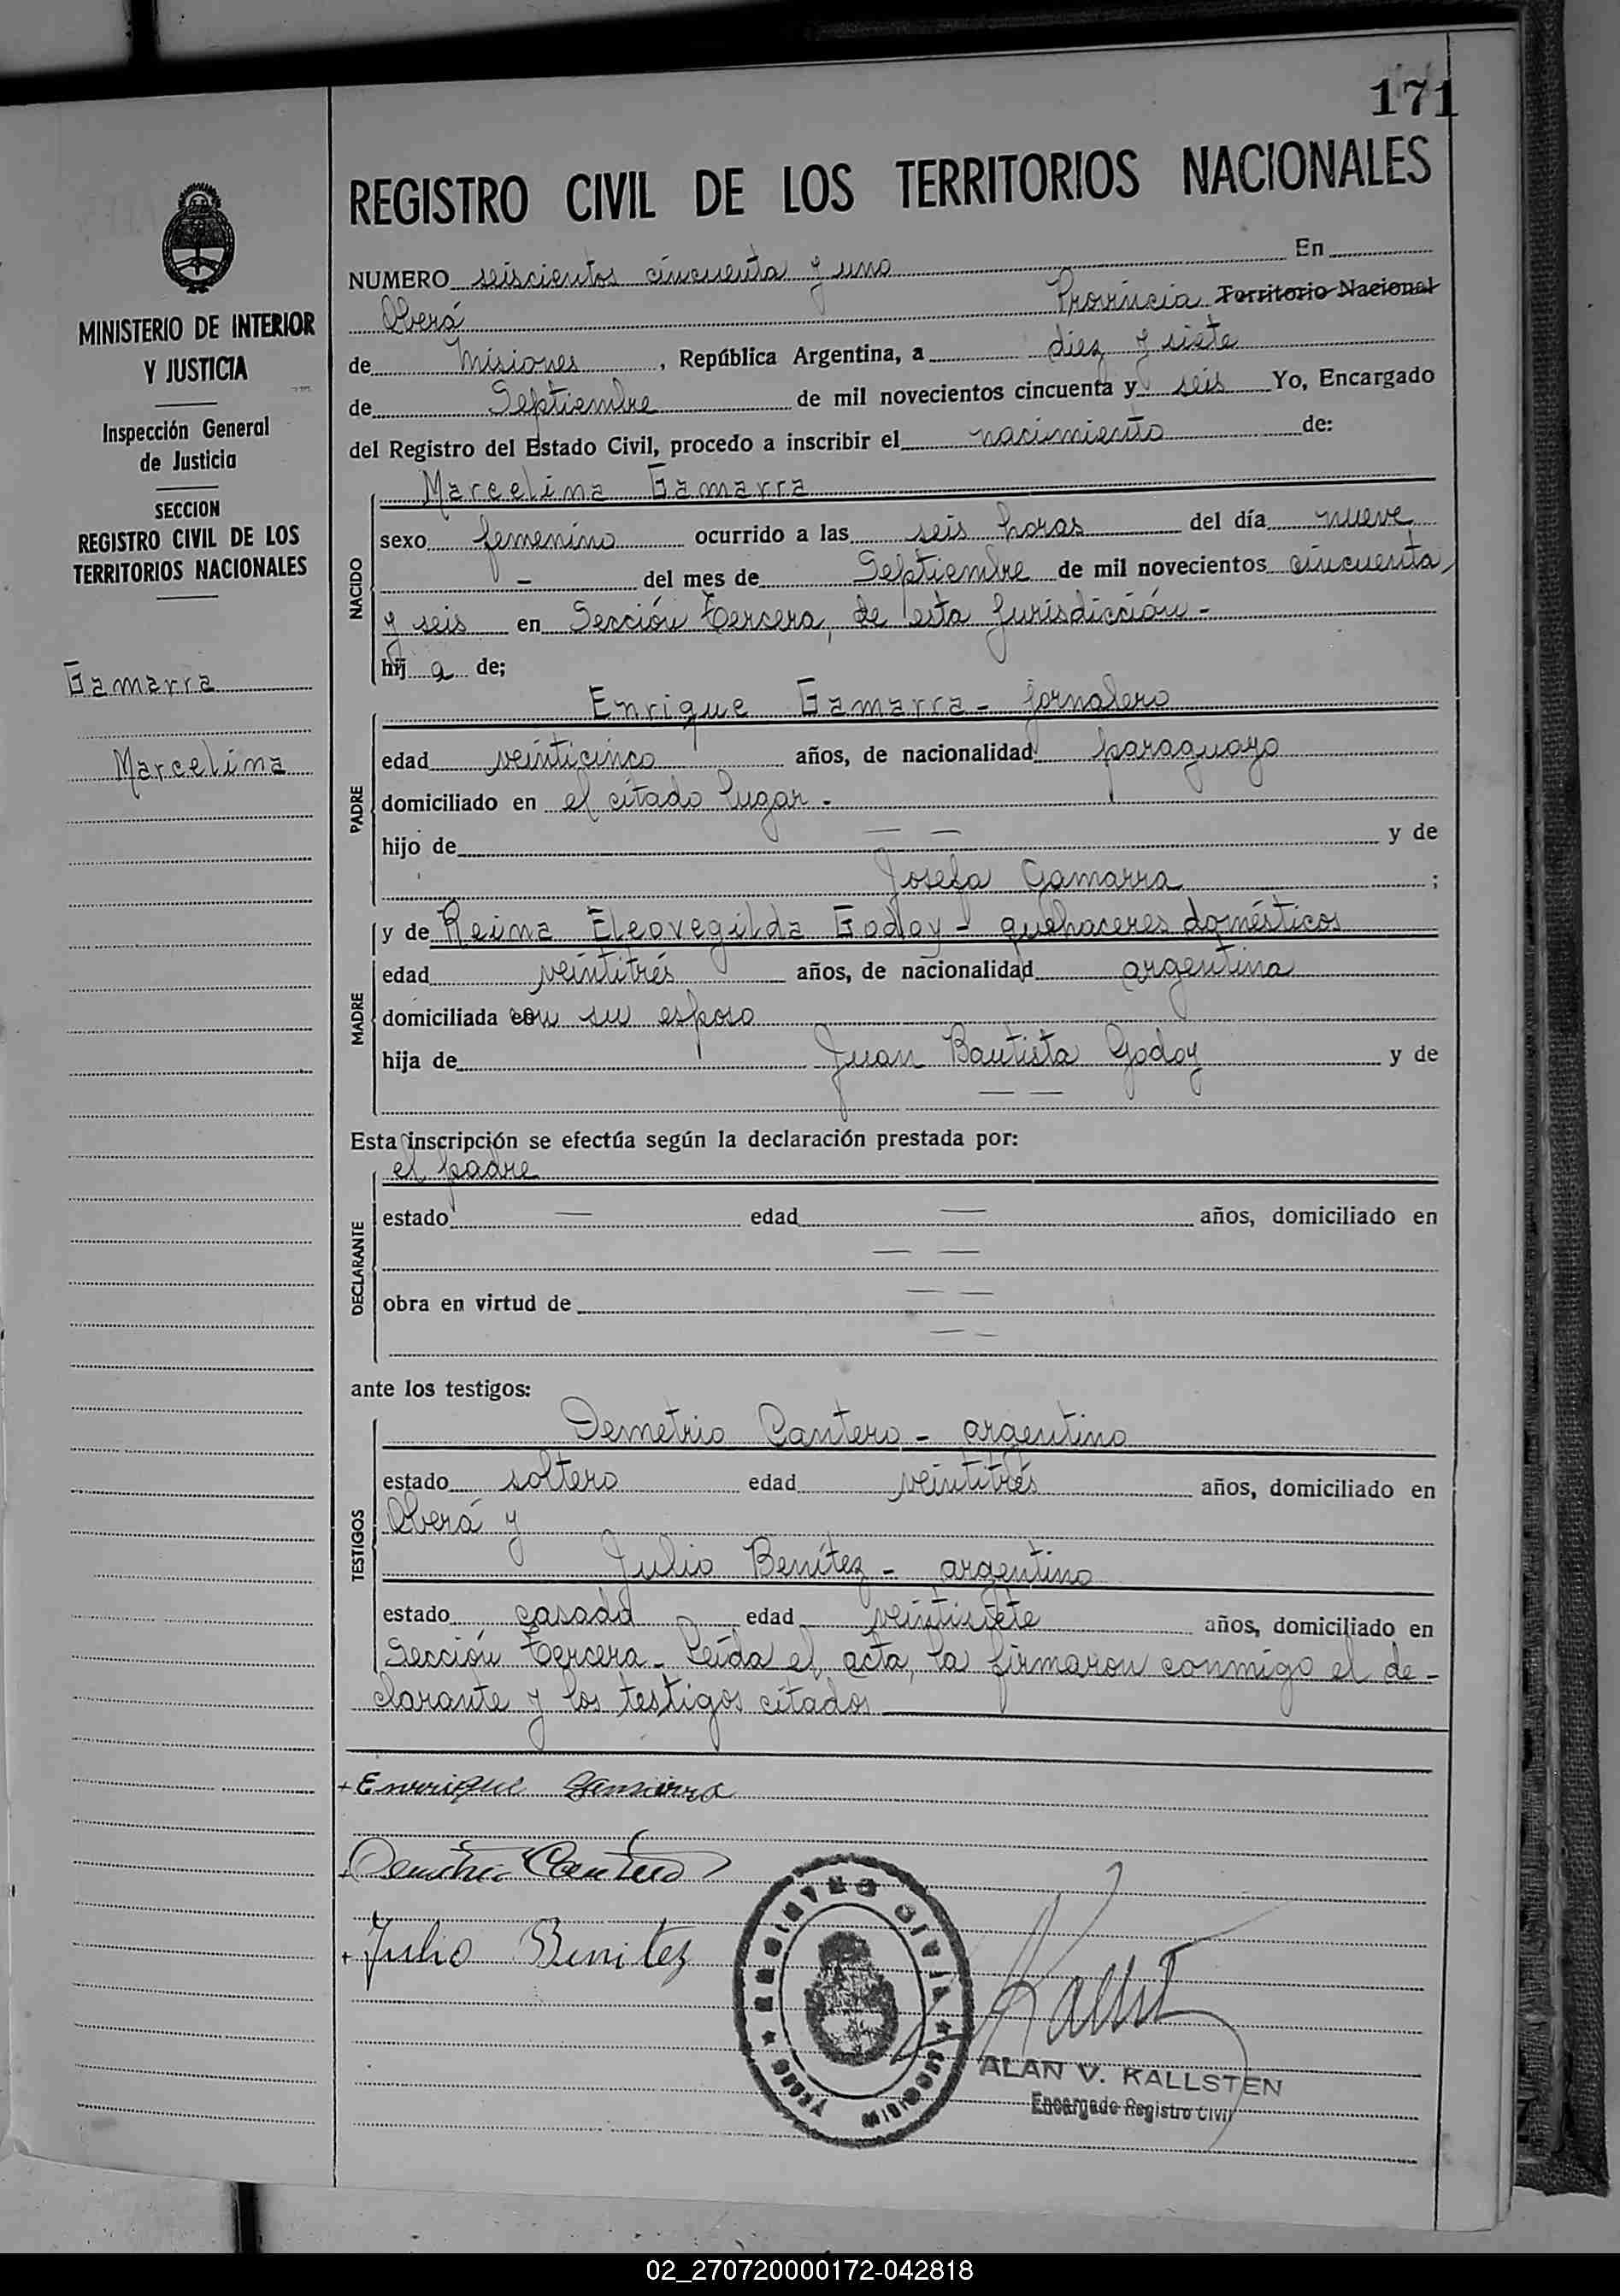 171
REGISTRO CIVIL DE LOS TERRITORIOS NACIONALES
MINISTERIO DE INTERIOR
Y JUSTICIA
Inspección General
de Justicia
SECCION
REGISTRO CIVIL DE LOS
TERRITORIOS NACIONALES
Gamarra
Marcelina
NUMERO seiscientos cincuenta y uno En
Oberá Provincia Territorio Nacional
de Misiones, República Argentina, a diez y siete
de Septiembre de mil novecientos cincuenta y seis Yo, Encargado
del Registro del Estado Civil, procedo a inscribir el nacimiento de:
NACIDO
Marcelina Gamarra
sexo femenino ocurrido a las seis horas del día nueve
- del mes de Septiembre de mil novecientos cincuenta
y seis en Sección tercera, de esta jurisdicción -
hij a de;
PADRE
Enrique Gamarra - jornalero
edad veinticinco años, de nacionalidad paraguayo
domiciliado en el citado lugar -
hijo de — — y de
Josefa Gamarra ;
MADRE
y de Reina Eleovegilda Godoy - quehaceres domésticos
edad veintitrés años, de nacionalidad argentina
domiciliada con su esposo
hija de Juan Bautista Godoy y de
— —
Esta inscripción se efectúa según la declaración prestada por:
DECLARANTE
el padre
estado — edad — años, domiciliado en
— —
obra en virtud de — —
— —
ante los testigos:
TESTIGOS
Demetrio Cantero - argentino
estado soltero edad veintitrés años, domiciliado en
Oberá y
Julio Benítez - argentino
estado casado edad veintisiete años, domiciliado en
Sección tercera - Leída el acta, la firmaron conmigo el de-
clarante y los testigos citados
+ Enrrique Gamarra
Demetrio Cantero
+ Julio Benitez
REGISTRO CIVIL
OBERA MISIONES
Kallst
ALAN V. KALLSTEN
Encargado Registro Civil
02_270720000172-042818